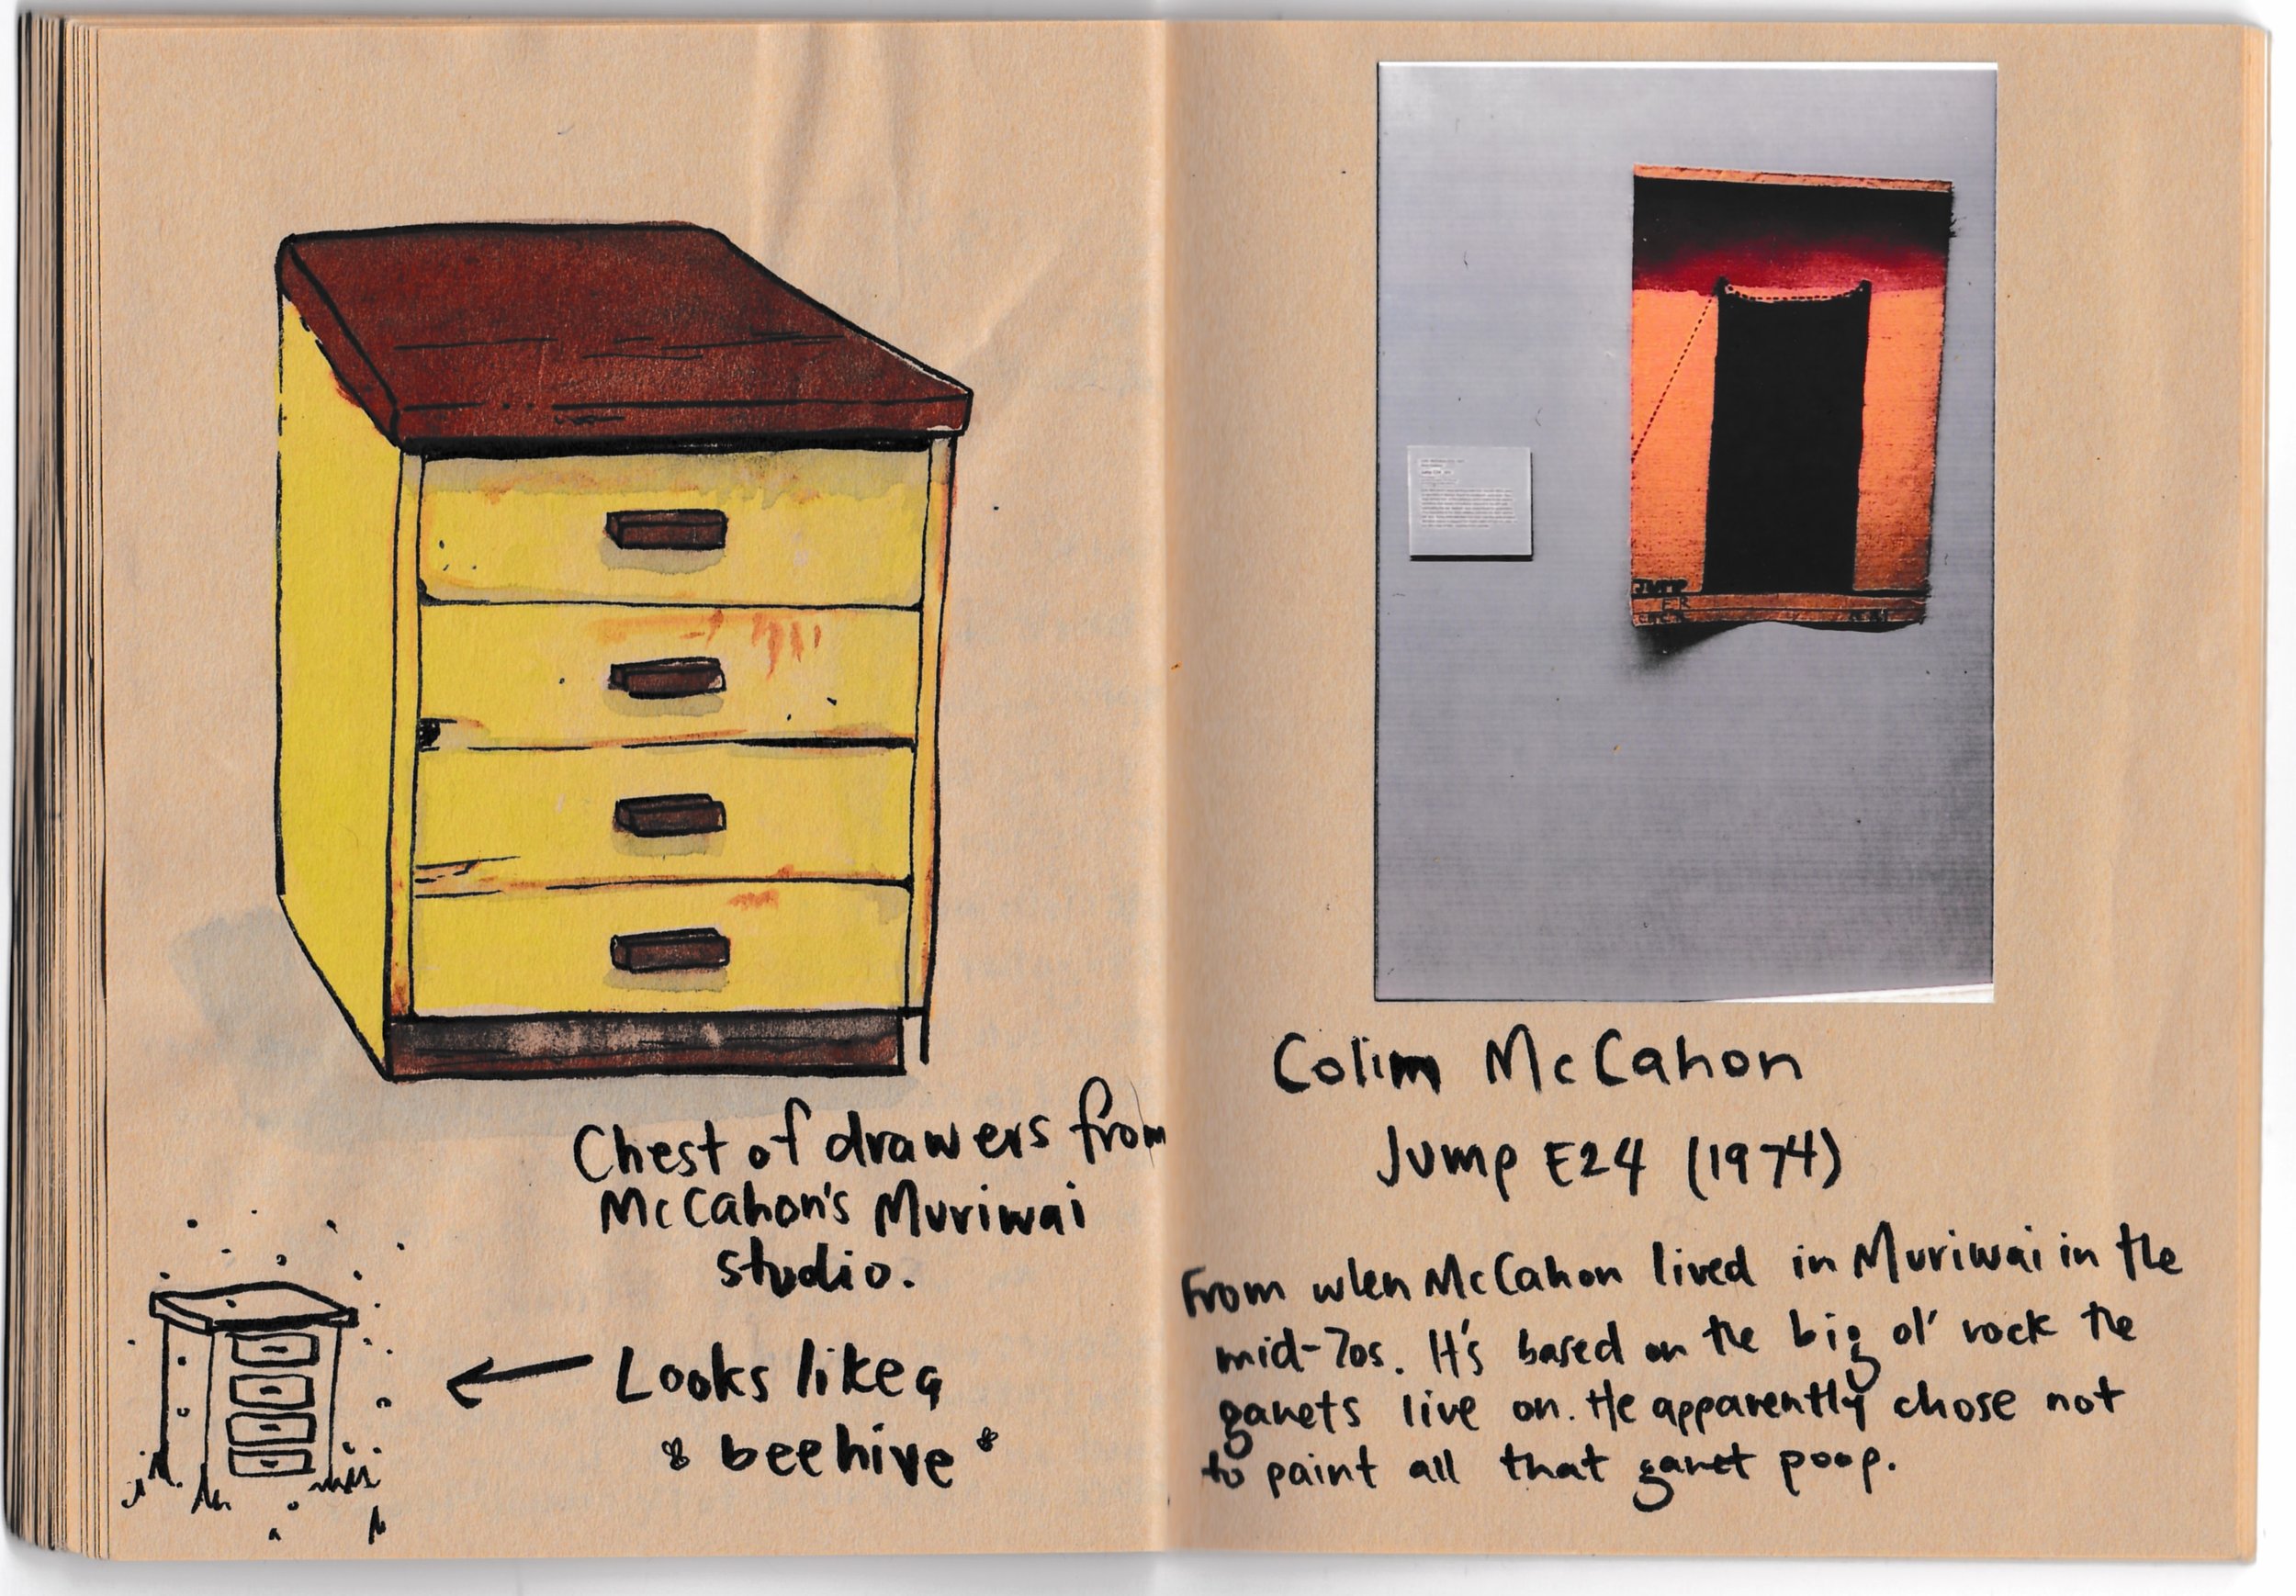 Chest of drawers from
McCahon's Muriwai
studio.
Looks like a
beehive
JUMP
Colin McCahon
Jump E24 (1974)
From when McCahon lived in Muriwai in the
mid-70s. It's based on the big ol' rock the
ganets live on. He apparently chose not
to paint all that ganet poop.